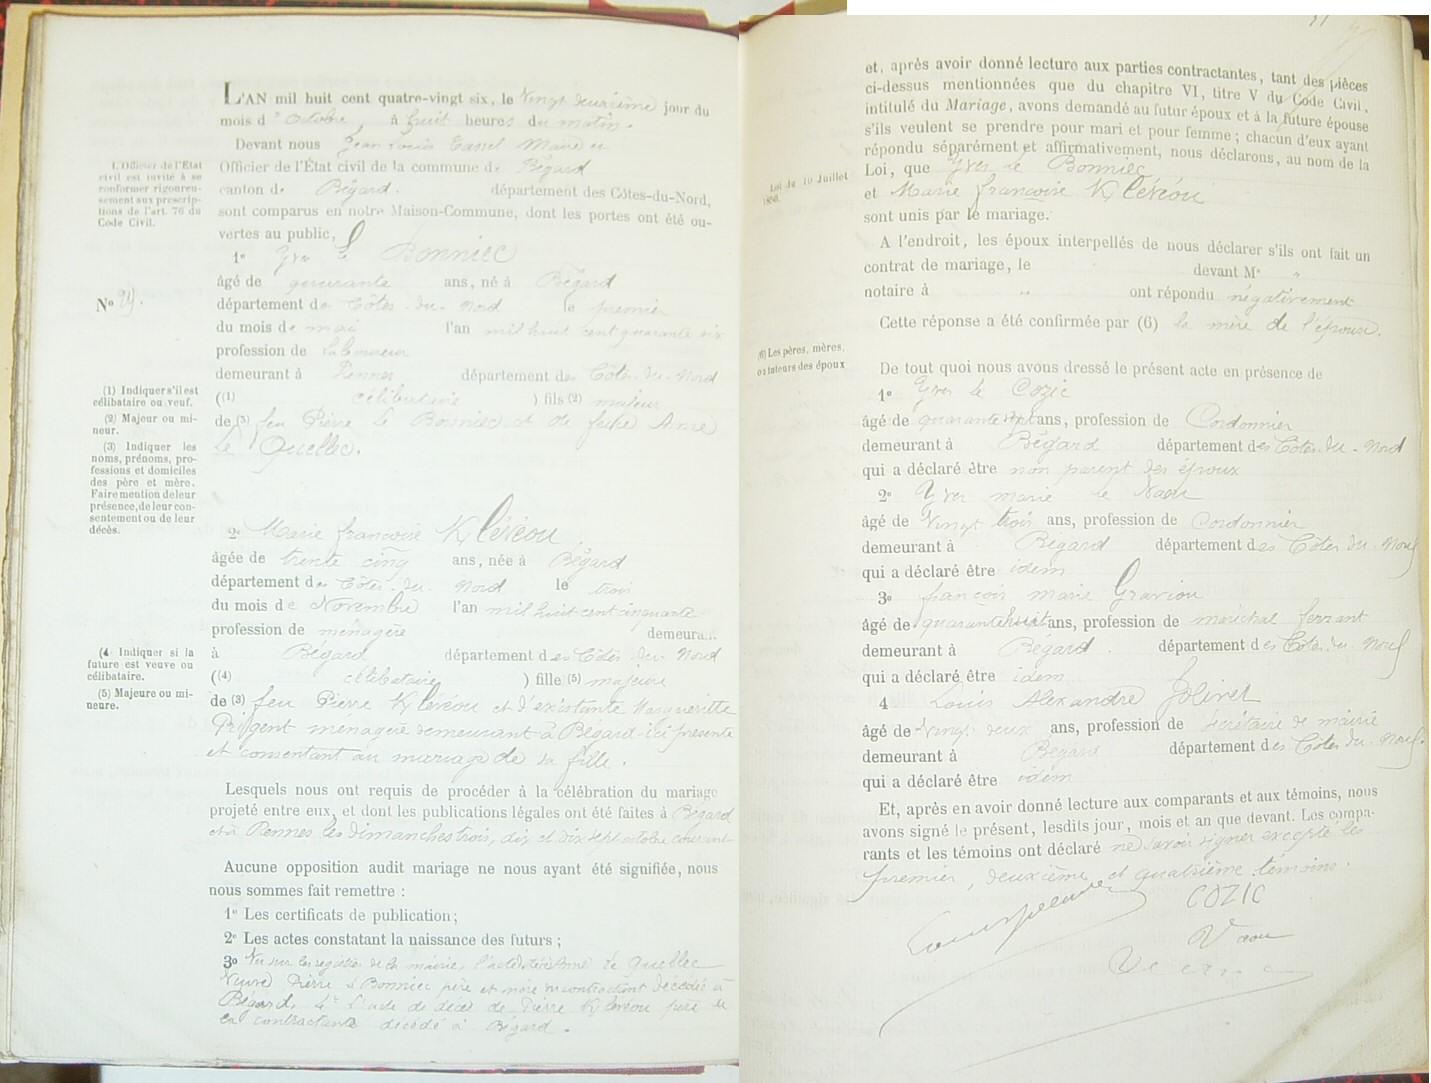 L'AN mil huit cent quatre-vingt six, le Vingt deuxième jour du
mois d'Octobre, à huit heures du matin.
Devant nous Jean Louis Tassel Maire et
Officier de l'État civil de la commune de Bégard
canton de Bégard. département des Côtes-du-Nord,
sont comparus en notre Maison-Commune, dont les portes ont été ou-
vertes au public,
1º Yves le Bonniec
âgé de quarante ans, né à Bégard
département des Côtes-du-Nord le premier
du mois de mai l'an mil huit cent quarante six
profession de laboureur
demeurant à département des Côtes-du-Nord
((1) célibataire ) fils (2) majeur
de (3) feu Pierre le Bonniec et de feue Anne
Le Quellec.
2º Marie françoise K/lévéou
âgée de trente cinq ans, née à Bégard
département des Côtes-du-Nord le trois
du mois de Novembre l'an mil huit cent cinquante
profession de ménagère demeura...
à Bégard département des Côtes-du-Nord
((4) célibataire ) fille (5) majeure
de (3) feu Pierre K/lévéou et d'existante Margueritte
Prigent ménagère demeurant à Bégard ici présente
et consentant au mariage de sa fille.
Lesquels nous ont requis de procéder à la célébration du mariage
projeté entre eux, et dont les publications légales ont été faites à Bégard
et à les dimanches trois, dix et dix sept octobre courant
Aucune opposition audit mariage ne nous ayant été signifiée, nous
nous sommes fait remettre :
1º Les certificats de publication;
2º Les actes constatant la naissance des futurs;
3º Vu sur les registres de la mairie, l'acte de décès Anne Le Quellec
Veuve Pierre le Bonniec père et mère du contractant décédés à
Bégard, 4º L'acte de décès de Pierre K/lévéou père de
la contractante décédé à Bégard.
L'Officier de l'État
civil est invité à se
conformer rigoureu-
sement aux prescrip-
tions de l'art. 76 du
Code Civil.
Nº 29.
(1) Indiquer s'il est
célibataire ou veuf.
(2) Majeur ou mi-
neur.
(3) Indiquer les
noms, prénoms, pro-
fessions et domiciles
des père et mère.
Faire mention de leur
présence, de leur con-
sentement ou de leur
décès.
(4 Indiquer si la
future est veuve ou
célibataire.
(5) Majeure ou mi-
neure.
et, après avoir donné lecture aux parties contractantes, tant des pièces
ci-dessus mentionnées que du chapitre VI, titre V du Code Civil,
intitulé du Mariage, avons demandé au futur époux et à la future épouse
s'ils veulent se prendre pour mari et pour femme; chacun d'eux ayant
répondu séparément et affirmativement, nous déclarons, au nom de la
Loi, que Yves le Bonniec
et Marie françoise K/lévéou
sont unis par le mariage.
A l'endroit, les époux interpellés de nous déclarer s'ils ont fait un
contrat de mariage, le devant Me "
notaire à " ont répondu négativement
Cette réponse a été confirmée par (6) la mère de l'épouse.
De tout quoi nous avons dressé le présent acte en présence de
1º Yves le Cozic
âgé de quarante sept ans, profession de Cordonnier
demeurant à Bégard département des Côtes-du-Nord
qui a déclaré être non parent des époux
2º Yves marie le Vaou
âgé de Vingt trois ans, profession de Cordonnier
demeurant à Bégard département des Côtes du Nord
qui a déclaré être idem
3º françois marie Graviou
âgé de quarante huit ans, profession de maréchal ferrant
demeurant à Bégard. département des Côtes-du-Nord
qui a déclaré être idem
4 Louis Alexandre Jolivet
âgé de Vingt deux ans, profession de Secrétaire de mairie
demeurant à Bégard département des Côtes du Nord.
qui a déclaré être idem
Et, après en avoir donné lecture aux comparants et aux témoins, nous
avons signé le présent, lesdits jour, mois et an que devant. Les compa-
rants et les témoins ont déclaré ne savoir signer excepté les
premier, deuxième et quatrième témoins.
COZIC
Vaou
Loi du 10 Juillet
1850.
(6) Les pères, mères,
ou tuteurs des époux